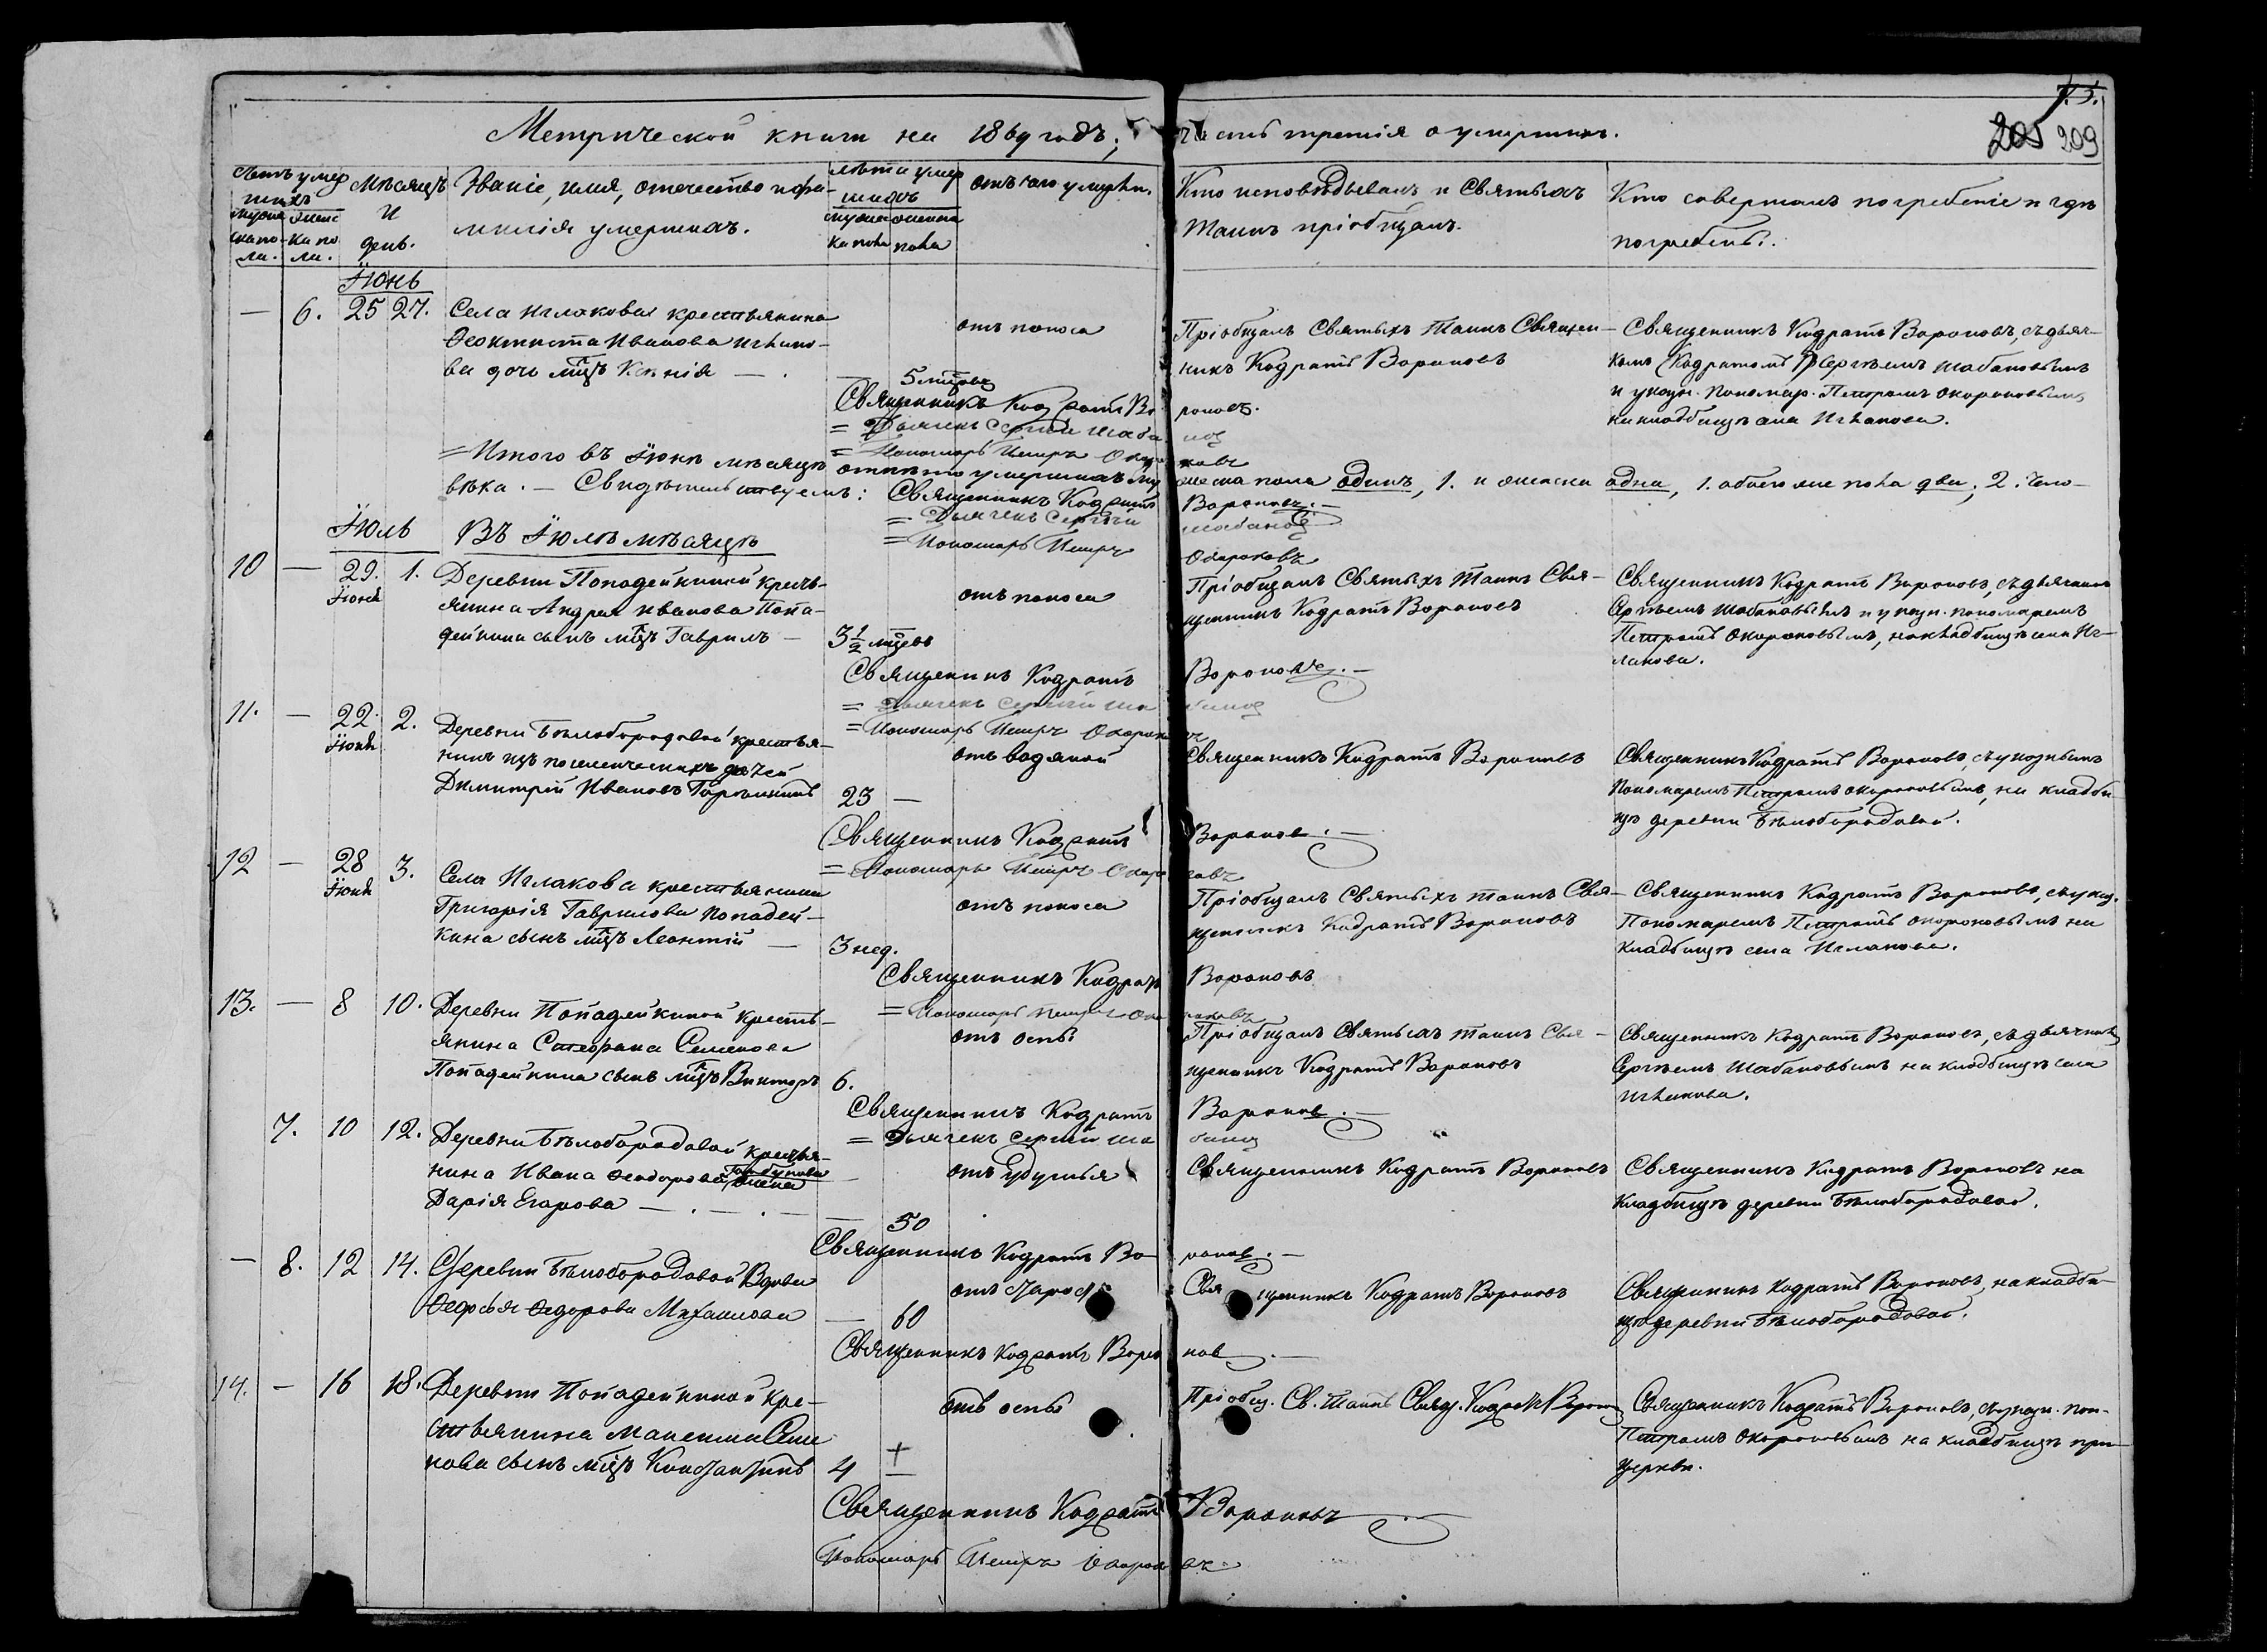 Метрической книги на 1869 годъ, часть третія о умершихъ.
75.
205 209
Счетъ умер
шихъ
мужеска пола.
женска пола.
Мѣсяцъ и день.
Званіе, имя, отечество и фамилія умершихъ.
лѣта умершихъ
мужеска пола
женска пола
отъ чего умерли.
Кто исповѣдывалъ и Святыхъ
Таинъ пріобщалъ.
Кто совершалъ погребеніе и гдѣ
погребены.
Іюнь
— 6. 25 27. Села Иглакова крестьянина
Ѳеоктиста Иванова Иглако-
ва дочь мцъ Ксенія — .
5 мцовъ
отъ поноса
Пріобщалъ Святыхъ Таинъ Священ-
никъ Кодратъ Вороновъ
Священникъ Кодратъ Вороновъ, съ дьяч-
комъ Сергѣемъ Шабановымъ
и указн. Пономар. Петромъ Окороковымъ
на кладбищѣ села Иглакова.
Священникъ Кодратъ Вороновъ.
= Дьячекъ Сергій Шабанов
= Пономарь Петръ Окороковъ
= Итого въ Іюнѣ мѣсяцѣ отпѣто умершихъ мужеска пола одинъ, 1. и женска одна, 1. обоего же пола два, 2. чело-
вѣка. — Свидѣтельствуемъ: Священникъ Кодратъ Вороновъ. —
= Дьячекъ Сергій Шабанов
= Пономарь Петръ Окороковъ
Іюль Въ Іюлѣ мѣсяцѣ
10 — 29. 1. Деревни Попадейкиной крестъ-
Іюня
янина Андрея Иванова Попа-
дейкина сынъ мцъ Гаврилъ —
3 1/2 мцевъ
отъ поноса
Пріобщалъ Святыхъ Таинъ Свя-
щенникъ Кодратъ Вороновъ
Священникъ Кодратъ Вороновъ, съ дьячкомъ
Сергѣемъ Шабановымъ и указн. пономаремъ
Петромъ Окороковымъ, на кладбищѣ села Иг-
лакова.
Священникъ Кодратъ Вороновъ. —
= Дьячекъ Сергій Шабанов
= Пономарь Петръ Окороковъ
11. — 22. 2. Деревни Бѣлобородовой крестья-
Іюня
нинъ изъ поселенческихъ дѣтей
Димитрій Ивановъ
23 —
отъ водяной
Священникъ Кодратъ Вороновъ
Священникъ Кодратъ Вороновъ, съ указнымъ
Пономаремъ Петромъ Окороковымъ, на кладби-
щѣ деревни Бѣлобородовой.
Священникъ Кодратъ Воронов. —
= Пономарь Петръ Окороковъ
12 — 28 3. Села Иглакова крестьянина
Іюня
Григорія Гаврилова Попадей-
кина сынъ мцъ Леонтій —
3 нед.
отъ поноса
Пріобщалъ Святыхъ Таинъ Свя-
щенникъ Кодратъ Вороновъ
Священникъ Кодратъ Вороновъ, съ указ.
Пономаремъ Петромъ Окороковымъ на
кладбищѣ села Иглакова.
Священникъ Кодратъ Вороновъ
= Пономарь Петръ Окороковъ
13. — 8 10. Деревни Попадейкиной кресть-
янина Стефана Семенова
Попадейкина сынъ мцъ Викторъ
6.
отъ оспы
Пріобщалъ Святыхъ Таинъ Свя-
щенникъ Кодратъ Вороновъ
Священникъ Кодратъ Вороновъ, съ дьячкомъ
Сергѣемъ Шабановымъ на кладбищѣ села
Иглакова.
Священникъ Кодратъ Воронов. —
= Дьячекъ Сергій Шабанов
7. 10 12. Деревни Бѣлобородовой крестья-
нина Ивана Ѳеодорова Горбунова жена
Дарія Егорова — . — . —
50
отъ удушья
Священникъ Кодратъ Вороновъ
Священникъ Кодратъ Вороновъ на
кладбищѣ деревни Бѣлобородовой.
Священникъ Кодратъ Воронов. —
— 8. 12 14. Деревни Бѣлобородовой Вдова
Ѳедосья Ѳедорова Михаилова
— 60
отъ старос
Священникъ Кодратъ Вороновъ
Священникъ Кодратъ Вороновъ, на кладби-
щѣ деревни Бѣлобородовой.
Священникъ Кодратъ Воронов. —
14. — 16 18. Деревни Попадейкиной кре-
стьянина Максима Семе
нова сынъ мцъ Константинъ
4
отъ оспы
Пріобщ. Св. Таинъ Свящ. Кодратъ Воронов
Священникъ Кодратъ Вороновъ, съ указн. пон.
Петромъ Окороковымъ на кладбищѣ при
церкви.
Священникъ Кодратъ Вороновъ
Пономарь Петръ Окороковъ